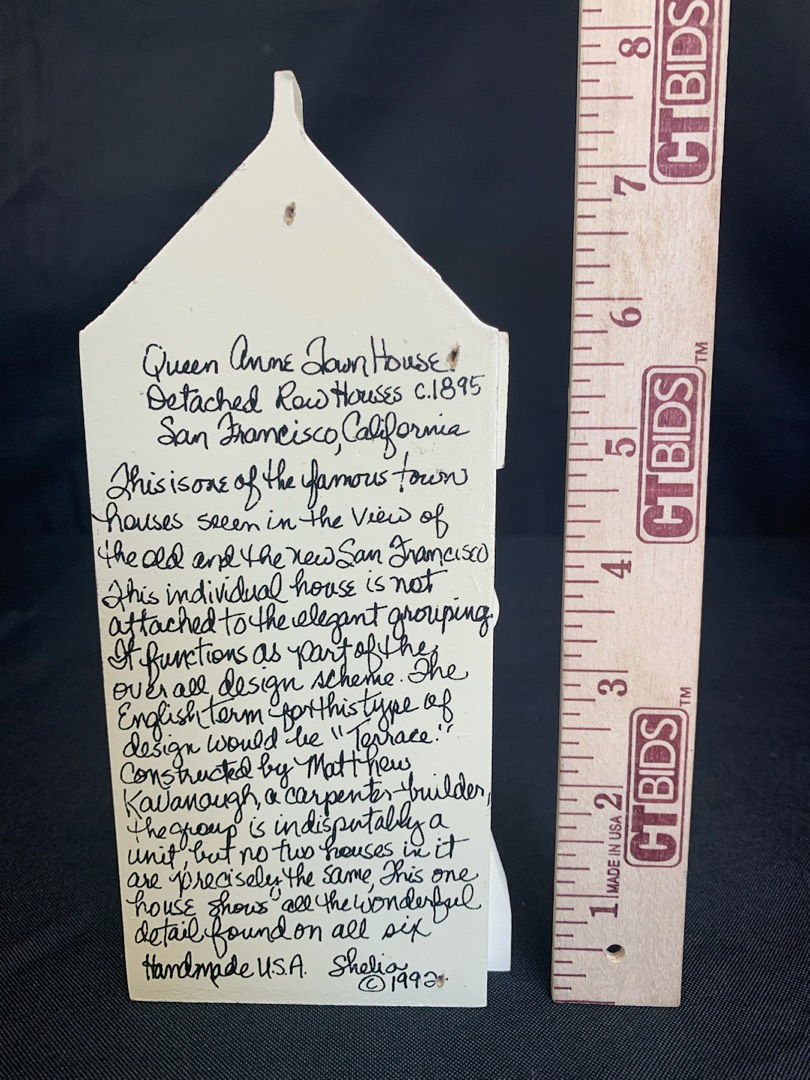 Queen Anne Town House
Detached Row Houses c.1895
San Francisco, California
This is one of the famous town
houses seen in the View of
the old and the new San Francisco
This individual house is not
attached to the elegant grouping.
It functions as part of the
over all design scheme. The
English term for this type of
design would be "Terrace."
Constructed by Matthew
Kavanaugh, a carpenter-builder,
the group is indisputably a
unit, but no two houses in it
are precisely the same, This one
house shows "all the wonderful
detail found on all six
Handmade U.S.A. Shelia
© 1992
8
7
6
5
4
3
2
1
CTBIDS
CTBIDS TM
CTBIDS TM
MADE IN USA